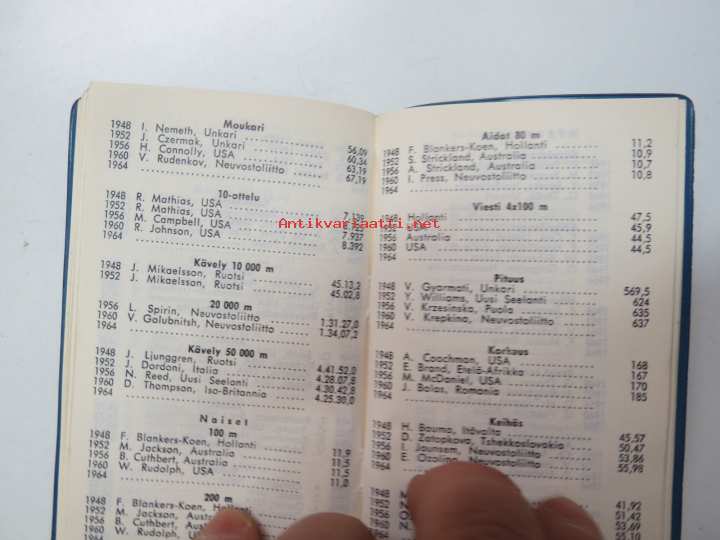 Moukari
1948 I. Nemeth, Unkari 56,09
1952 J. Czermak, Unkari 60,34
1956 H. Connolly, USA 63,19
1960 V. Rudenkov, Neuvostoliitto 67,19
1964
10-ottelu
1948 R. Mathias, USA 7.139
1952 R. Mathias, USA
1956 M. Campbell, USA 7.937
1960 R. Johnson, USA 8.392
1964
Kävely 10 000 m
1948 J. Mikaelsson, Ruotsi 45.13,2
1952 J. Mikaelsson, Ruotsi 45.02,8
20 000 m
1956 L. Spirin, Neuvostoliitto 1.31.27,0
1960 V. Golubnitsh, Neuvostoliitto 1.34.07,2
1964
Kävely 50 000 m
1948 J. Ljunggren, Ruotsi 4.41.52,0
1952 J. Dordoni, Italia 4.28.07,8
1956 N. Reed, Uusi Seelanti 4.30.42,8
1960 D. Thompson, Iso-Britannia 4.25.30,0
1964
Naiset
100 m
1948 F. Blankers-Koen, Hollanti 11,9
1952 M. Jackson, Australia 11,5
1956 B. Cuthbert, Australia 11,5
1960 W. Rudolph, USA 11,0
1964
200 m
1948 F. Blankers-Koen, Hollanti
1952 M. Jackson, Australia
1956 B. Cuthbert, Australia
1960 W. Rudolph, USA
Aidat 80 m
1948 F. Blankers-Koen, Hollanti 11,2
1952 S. Strickland, Australia 10,9
1956 A. Strickland, Australia 10,7
1960 I. Press, Neuvostoliitto 10,8
1964
Viesti 4x100 m
1948 Hollanti 47,5
1952 USA 45,9
1956 Australia 44,5
1960 USA 44,5
1964
Pituus
1948 V. Gyarmati, Unkari 569,5
1952 Y. Williams, Uusi Seelanti 624
1956 V. Krzesinska, Puola 635
1960 V. Krepkina, Neuvostoliitto 637
1964
Korkeus
1948 A. Coachman, USA 168
1952 E. Brand, Etelä-Afrikka 167
1956 M. McDaniel, USA 170
1960 J. Balas, Romania 185
1964
Keihäs
1948 H. Bauma, Itävalta 45,57
1952 D. Zatopkova, Tshekkoslovakia 50,47
1956 I. Jaunsem, Neuvostoliitto 53,86
1960 E. Ozolina, Neuvostoliitto 55,98
1964
1948 M. 41,92
1952 N. 51,42
1956 O. 53,69
1960 N. 55,10
Antikvariaatti.net